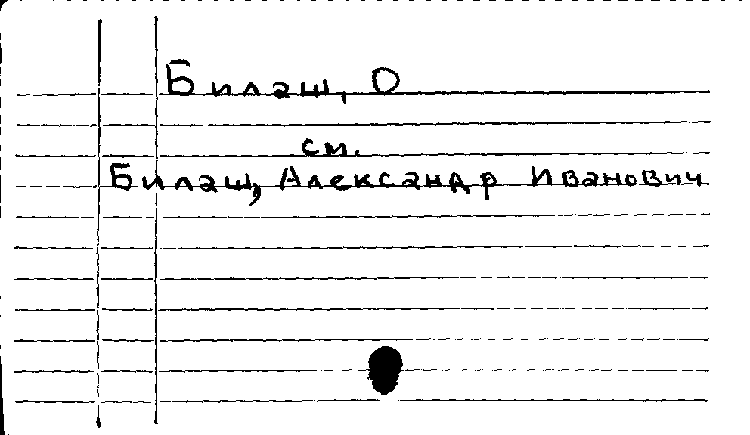 Билаш, О
см.
Билаш, Александр Иванович